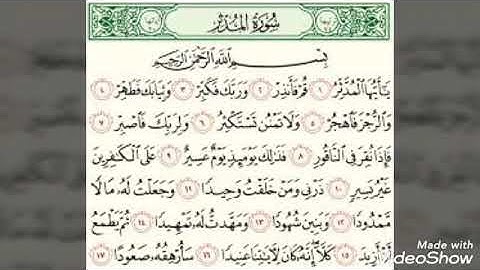 سُورَةُ المُدَّثِّر
بِسْمِ اللَّهِ الرَّحْمَٰنِ الرَّحِيمِ
يَا أَيُّهَا الْمُدَّثِّرُ ١ قُمْ فَأَنذِرْ ٢ وَرَبَّكَ فَكَبِّرْ ٣ وَثِيَابَكَ فَطَهِّرْ ٤
وَالرُّجْزَ فَاهْجُرْ ٥ وَلَا تَمْنُن تَسْتَكْثِرُ ٦ وَلِرَبِّكَ فَاصْبِرْ ٧
فَإِذَا نُقِرَ فِي النَّاقُورِ ٨ فَذَٰلِكَ يَوْمَئِذٍ يَوْمٌ عَسِيرٌ ٩ عَلَى الْكَٰفِرِينَ
غَيْرُ يَسِيرٍ ١٠ ذَرْنِي وَمَنْ خَلَقْتُ وَحِيدًا ١١ وَجَعَلْتُ لَهُ مَالًا
مَّمْدُودًا ١٢ وَبَنِينَ شُهُودًا ١٣ وَمَهَّدتُّ لَهُ تَمْهِيدًا ١٤ ثُمَّ يَطْمَعُ
أَنْ أَزِيدَ ١٥ كَلَّا إِنَّهُ كَانَ لِآيَٰتِنَا عَنِيدًا ١٦ سَأُرْهِقُهُ صَعُودًا ١٧
Made with
VideoShow